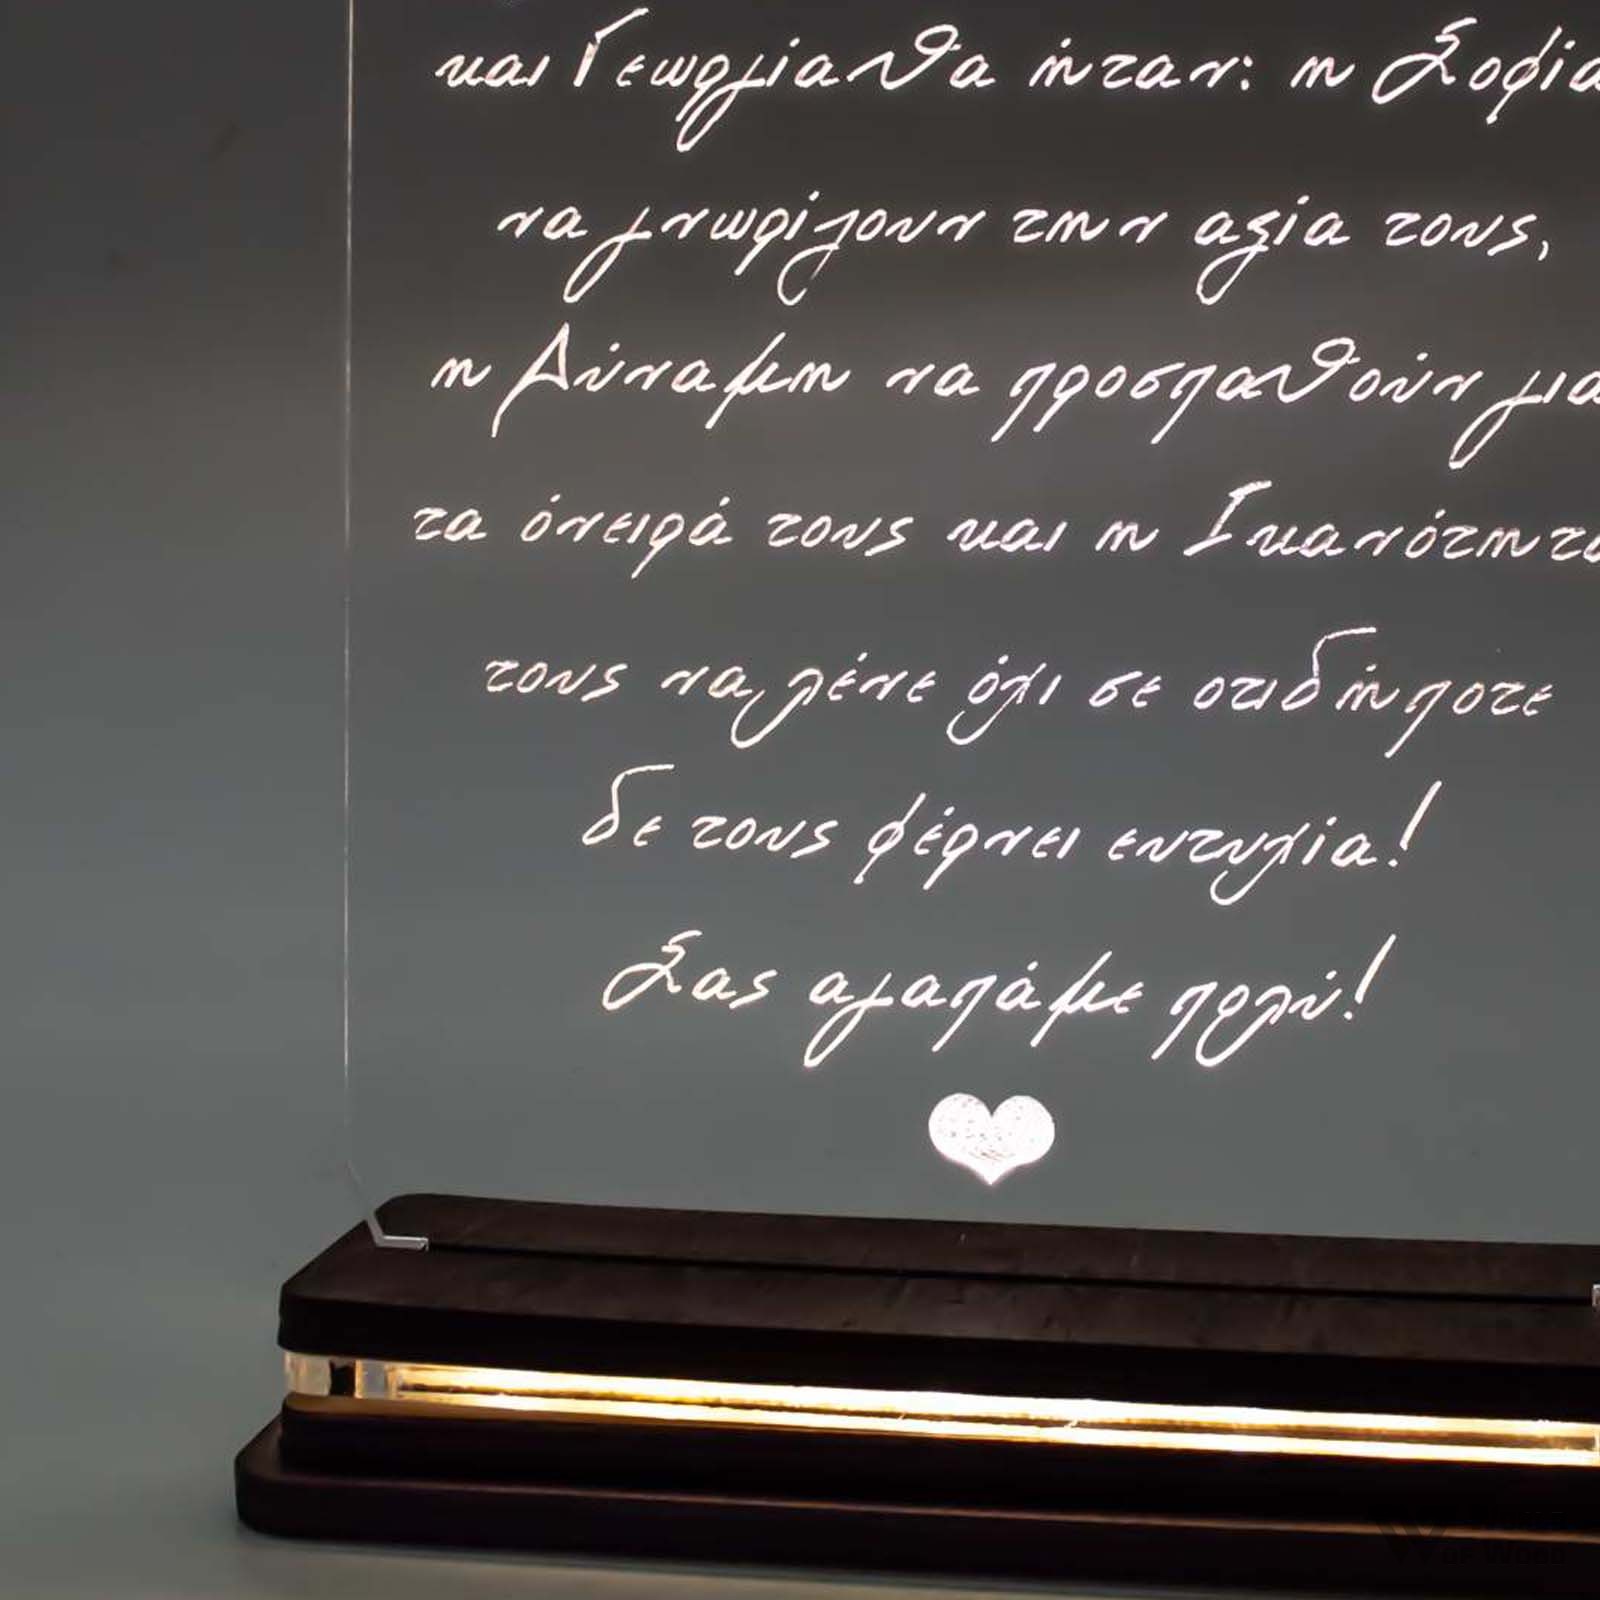 και Γεωργία θα ήταν: η Σοφία
να γνωρίζουν την αξία τους,
η Δύναμη να προσπαθούν για
τα όνειρά τους και η Ικανότητα
τους να λένε όχι σε οτιδήποτε
δε τους φέρνει ευτυχία!
Σας αγαπάμε πολύ!
OF WOOD